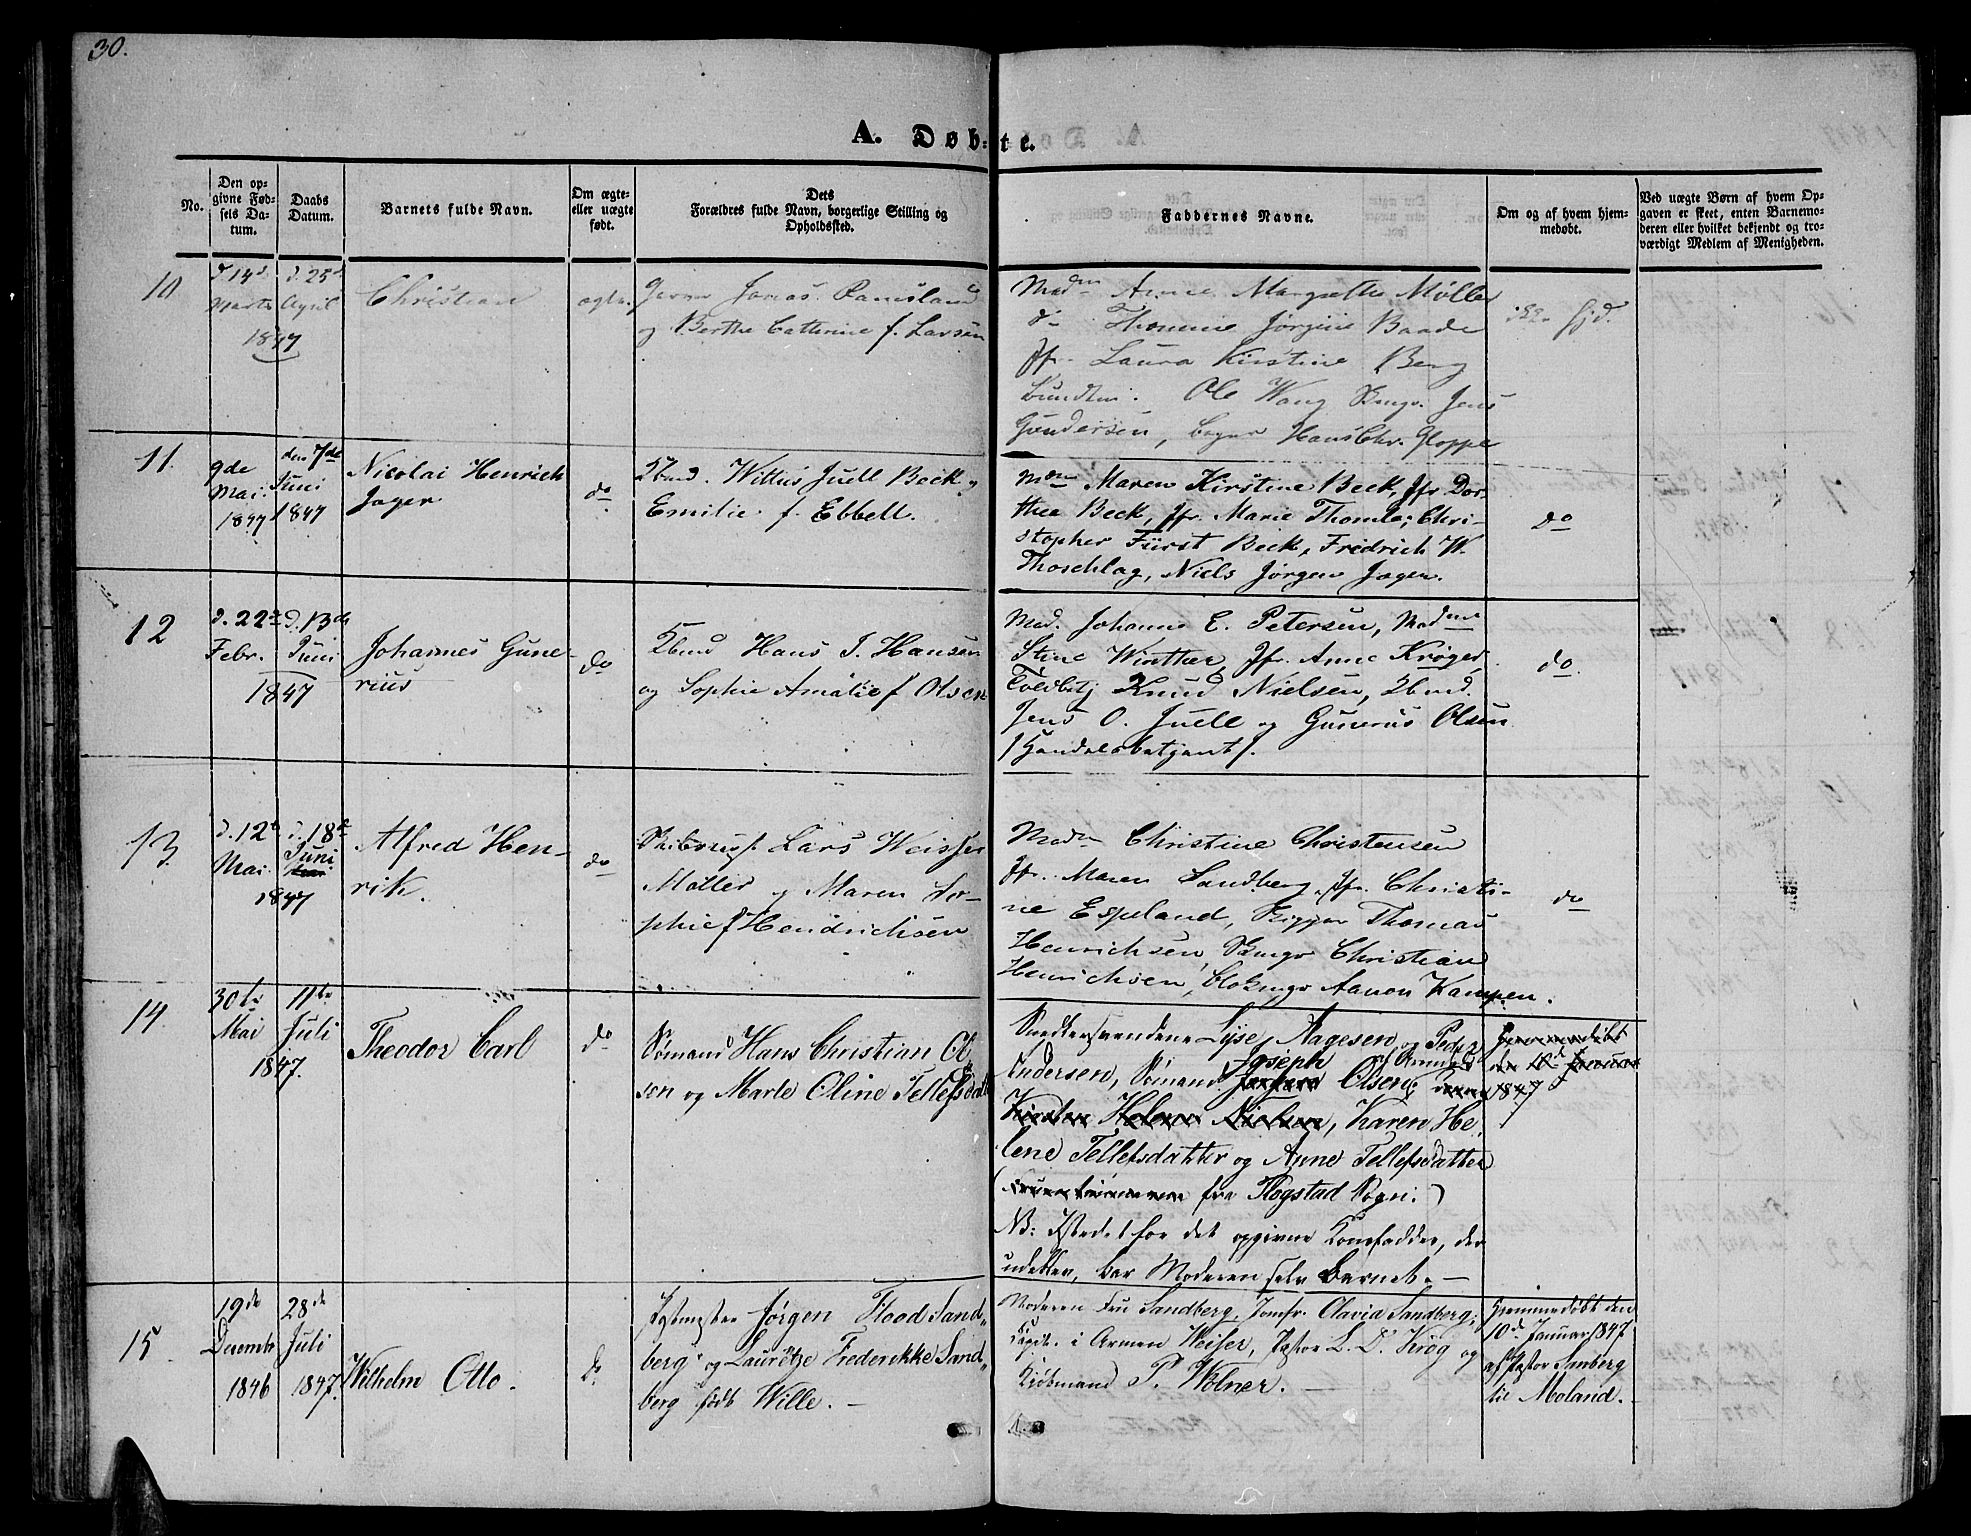 30.
A. Døb-te.
No.
Den op-
givne Fød-
sels Da-
tum.
Daabs
Datum.
Barnets fulde Navn.
Om ægte-
eller uægte
født.
Dets
Forældres fulde Navn, borgerlige Stilling og
Opholdssted.
Faddernes Navne.
Om og af hvem hjem-
medøbt.
Ved uægte Børn af hvem Op-
gaven er skeet, enten Barnemo-
deren eller hvilket bekjendt og tro-
værdigt Medlem af Menigheden.
10
d 14d
Marts
d. 25d
April
1847
Christian
ægte.
Jonas
og Berthe Cathrine f. Larsen
Madm Anne Margrethe Møller
do Thomine Jørgine Baade
Jfr. Laura Kirstine Berg
Ole Wang Jens
Gundersen, Hans Chr. Gloppe
hjd.
11.
9de
Mai
1847
den 7de
Juni
1847
Nicolai Henrich
Jager
do
Wittus Juell Beck og
Emilie f. Ebbell.
Mdm Maren Kirstine Beck, Jfr Dor-
thea Beck, Jfr. Marie Thomle; Chri-
stopher Fürst Beck, Fredrich W.
Thoschlag, Niels Jørgen Jager.
do
12
d. 22d
Febr.
d. 13de
Juni
1847
Johannes Gune-
rius
do
Hans J. Hansen
og Sophie Amalie f Olsen
Mad. Johanne E. Petersen, Madm
Stine Winther, Jfr. Anne Krøger,
Toldbetj Knud Nielsen,
Jens O. Juell og Gunerius Olsen
/Handelsbetjent/.
do.
13.
d. 12t
Mai.
d. 18d
Juni
1847
Alfred Hen-
rik.
do
Lars Weisser
Møller og Maren So-
phie f Hendrichsen
Madm Christine Christensen
Jfr. Maren Sandberg, Jfr. Christi-
ne Espeland, Skipper Thomas
Henrichsen, Christian
Henrichsen, Aanon Kampen.
do
14.
30te
Mai
11te
Juli
1847.
Theodor Carl
do
Sømand Hans Christian Ol-
sen og Marte Oline Tellefsdatt
Snedkersvendene Lyse Aagesen og Peder
Andersen, Sømand Joseph Olsen
Kirsten Helene Nielsen, Karen He-
lene Tellefsdatter og Anne Tellefsdatter
fra Flogstad Sogn.)
NB: Istedet for det opgivne Konefadder, der
udeblev, bar Moderen selv Barnet. —
Hjemmedøbt
den 10d Januar
1847
15.
19de
Decemb
1846
28de
Juli
1847.
Wilhelm Otto.
do
Postmester Jørgen Flood Sand-
berg og Lauretze Frederikke Sand-
berg født Wille. —
Moderen Fru Sandberg, Jomfr. Olavia Sandberg,
Capit. i Armen Weiser, Pastor L. D. Krog og
Kjøbmand P. Wolner. —
Hjemmedøbt den
10d Januar 1847
af Pastor Sanberg
til Moland. —